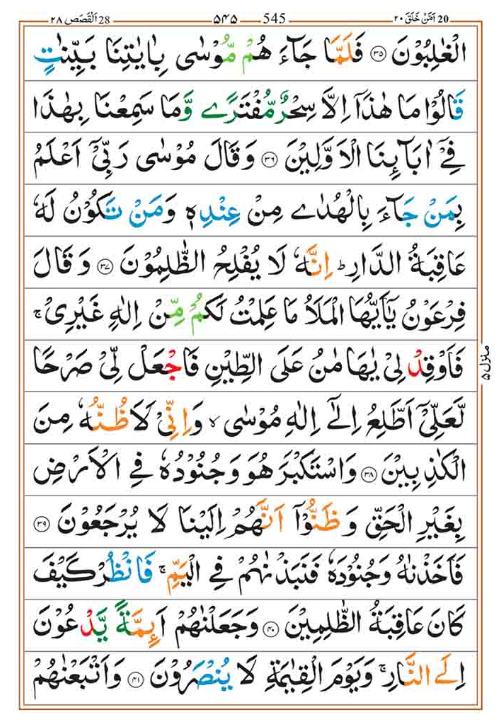 28 اَلْقَصَص ٢٨ — ۵۴۵ — 545 — اَمَّنْ خَلَقَ ٢٠ 20
الْغٰلِبُوْنَ ﴿۳۵﴾ فَلَمَّا جَآءَ هُمْ مُّوْسٰى بِاٰيٰتِنَا بَيِّنٰتٍ
قَالُوْا مَا هٰذَاۤ اِلَّا سِحْرٌ مُّفْتَرًى وَّمَا سَمِعْنَا بِهٰذَا
فِىْۤ اٰبَآئِنَا الْاَوَّلِيْنَ ﴿۳۶﴾ وَقَالَ مُوْسٰى رَبِّىْۤ اَعْلَمُ
بِمَنْ جَآءَ بِالْهُدٰى مِنْ عِنْدِهٖ وَمَنْ تَكُوْنُ لَهٗ
عَاقِبَةُ الدَّارِؕ اِنَّهٗ لَا يُفْلِحُ الظّٰلِمُوْنَ ﴿۳۷﴾ وَقَالَ
فِرْعَوْنُ يٰۤاَيُّهَا الْمَلَاُ مَا عَلِمْتُ لَكُمْ مِّنْ اِلٰهٍ غَيْرِىْۚ
فَاَوْقِدْ لِىْ يٰهَامٰنُ عَلَى الطِّيْنِ فَاجْعَلْ لِّىْ صَرْحًا
لَّعَلِّىْۤ اَطَّلِعُ اِلٰٓى اِلٰهِ مُوْسٰىۙ وَاِنِّىْ لَاَظُنُّهٗ مِنَ
الْكٰذِبِيْنَ ﴿۳۸﴾ وَاسْتَكْبَرَ هُوَ وَجُنُوْدُهٗ فِى الْاَرْضِ
بِغَيْرِ الْحَقِّ وَظَنُّوْۤا اَنَّهُمْ اِلَيْنَا لَا يُرْجَعُوْنَ ﴿۳۹﴾
فَاَخَذْنٰهُ وَجُنُوْدَهٗ فَنَبَذْنٰهُمْ فِى الْيَمِّۚ فَانْظُرْ كَيْفَ
كَانَ عَاقِبَةُ الظّٰلِمِيْنَ ﴿۴۰﴾ وَجَعَلْنٰهُمْ اَئِمَّةً يَّدْعُوْنَ
اِلَى النَّارِۚ وَيَوْمَ الْقِيٰمَةِ لَا يُنْصَرُوْنَ ﴿۴۱﴾ وَاَتْبَعْنٰهُمْ
منزل ۵